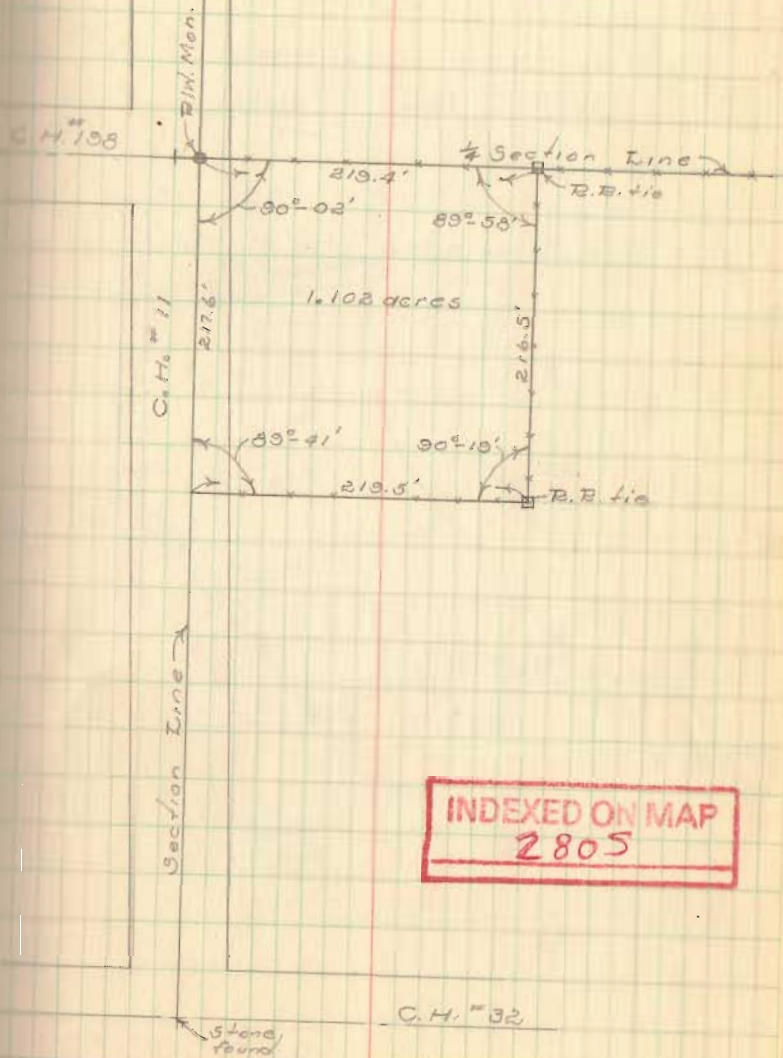 R/W. Mon.
C.H. #198
1/4 Section Line
219.4'
R.R. tie
90°-02'
89°-58'
1.102 acres
C.H. #11
217.6'
216.5'
89°-41'
90°-19'
219.5'
R.R. tie
Section Line
INDEXED ON MAP
2805
C.H. #32
Stone
found